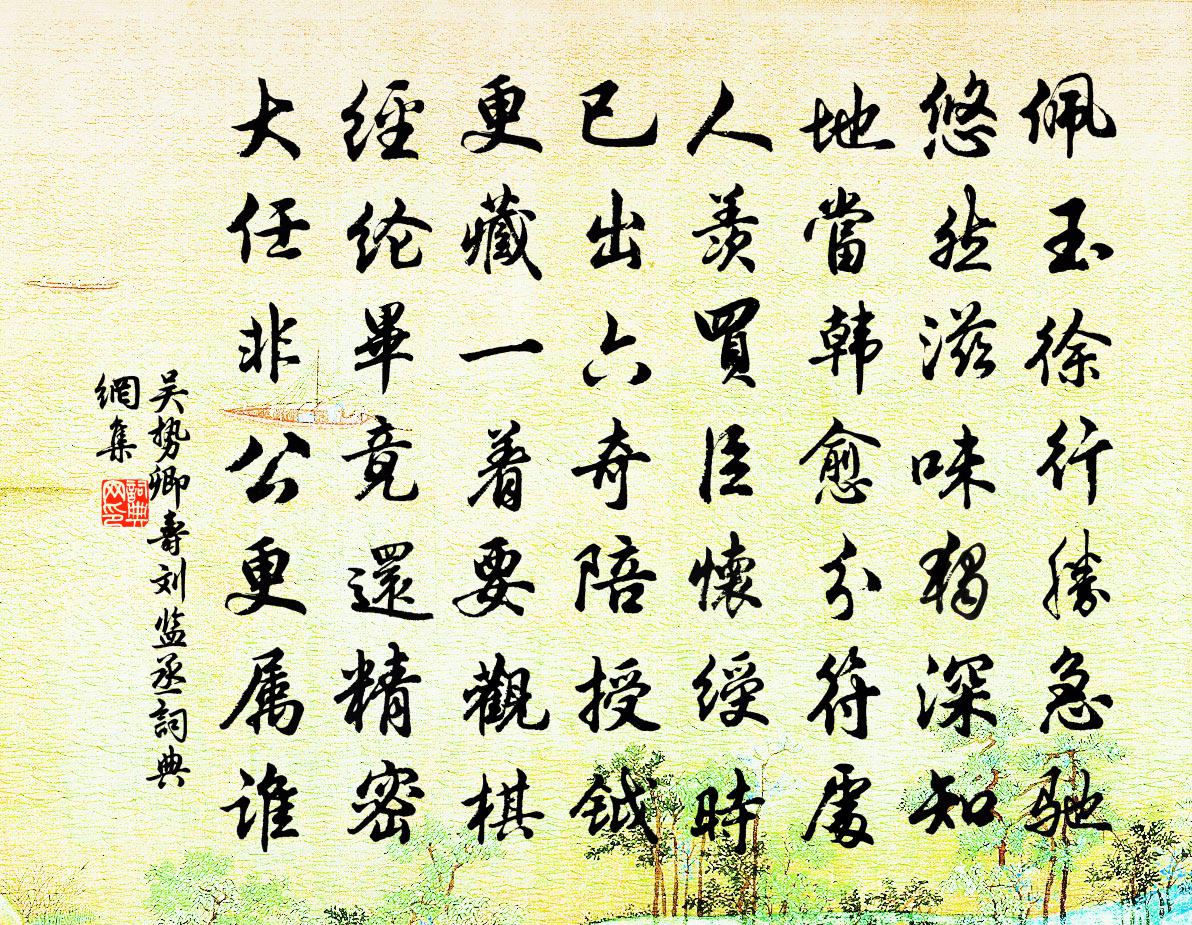 佩玉徐行勝急馳
悠然滋味獨深知
地當韩愈分符處
人羨買臣懷綬時
已出六奇陪授鉞
更藏一着要觀棋
經纶畢竟還精密
大任非公更属谁
吴势卿寿刘监丞詞典
網集
詞典
网印